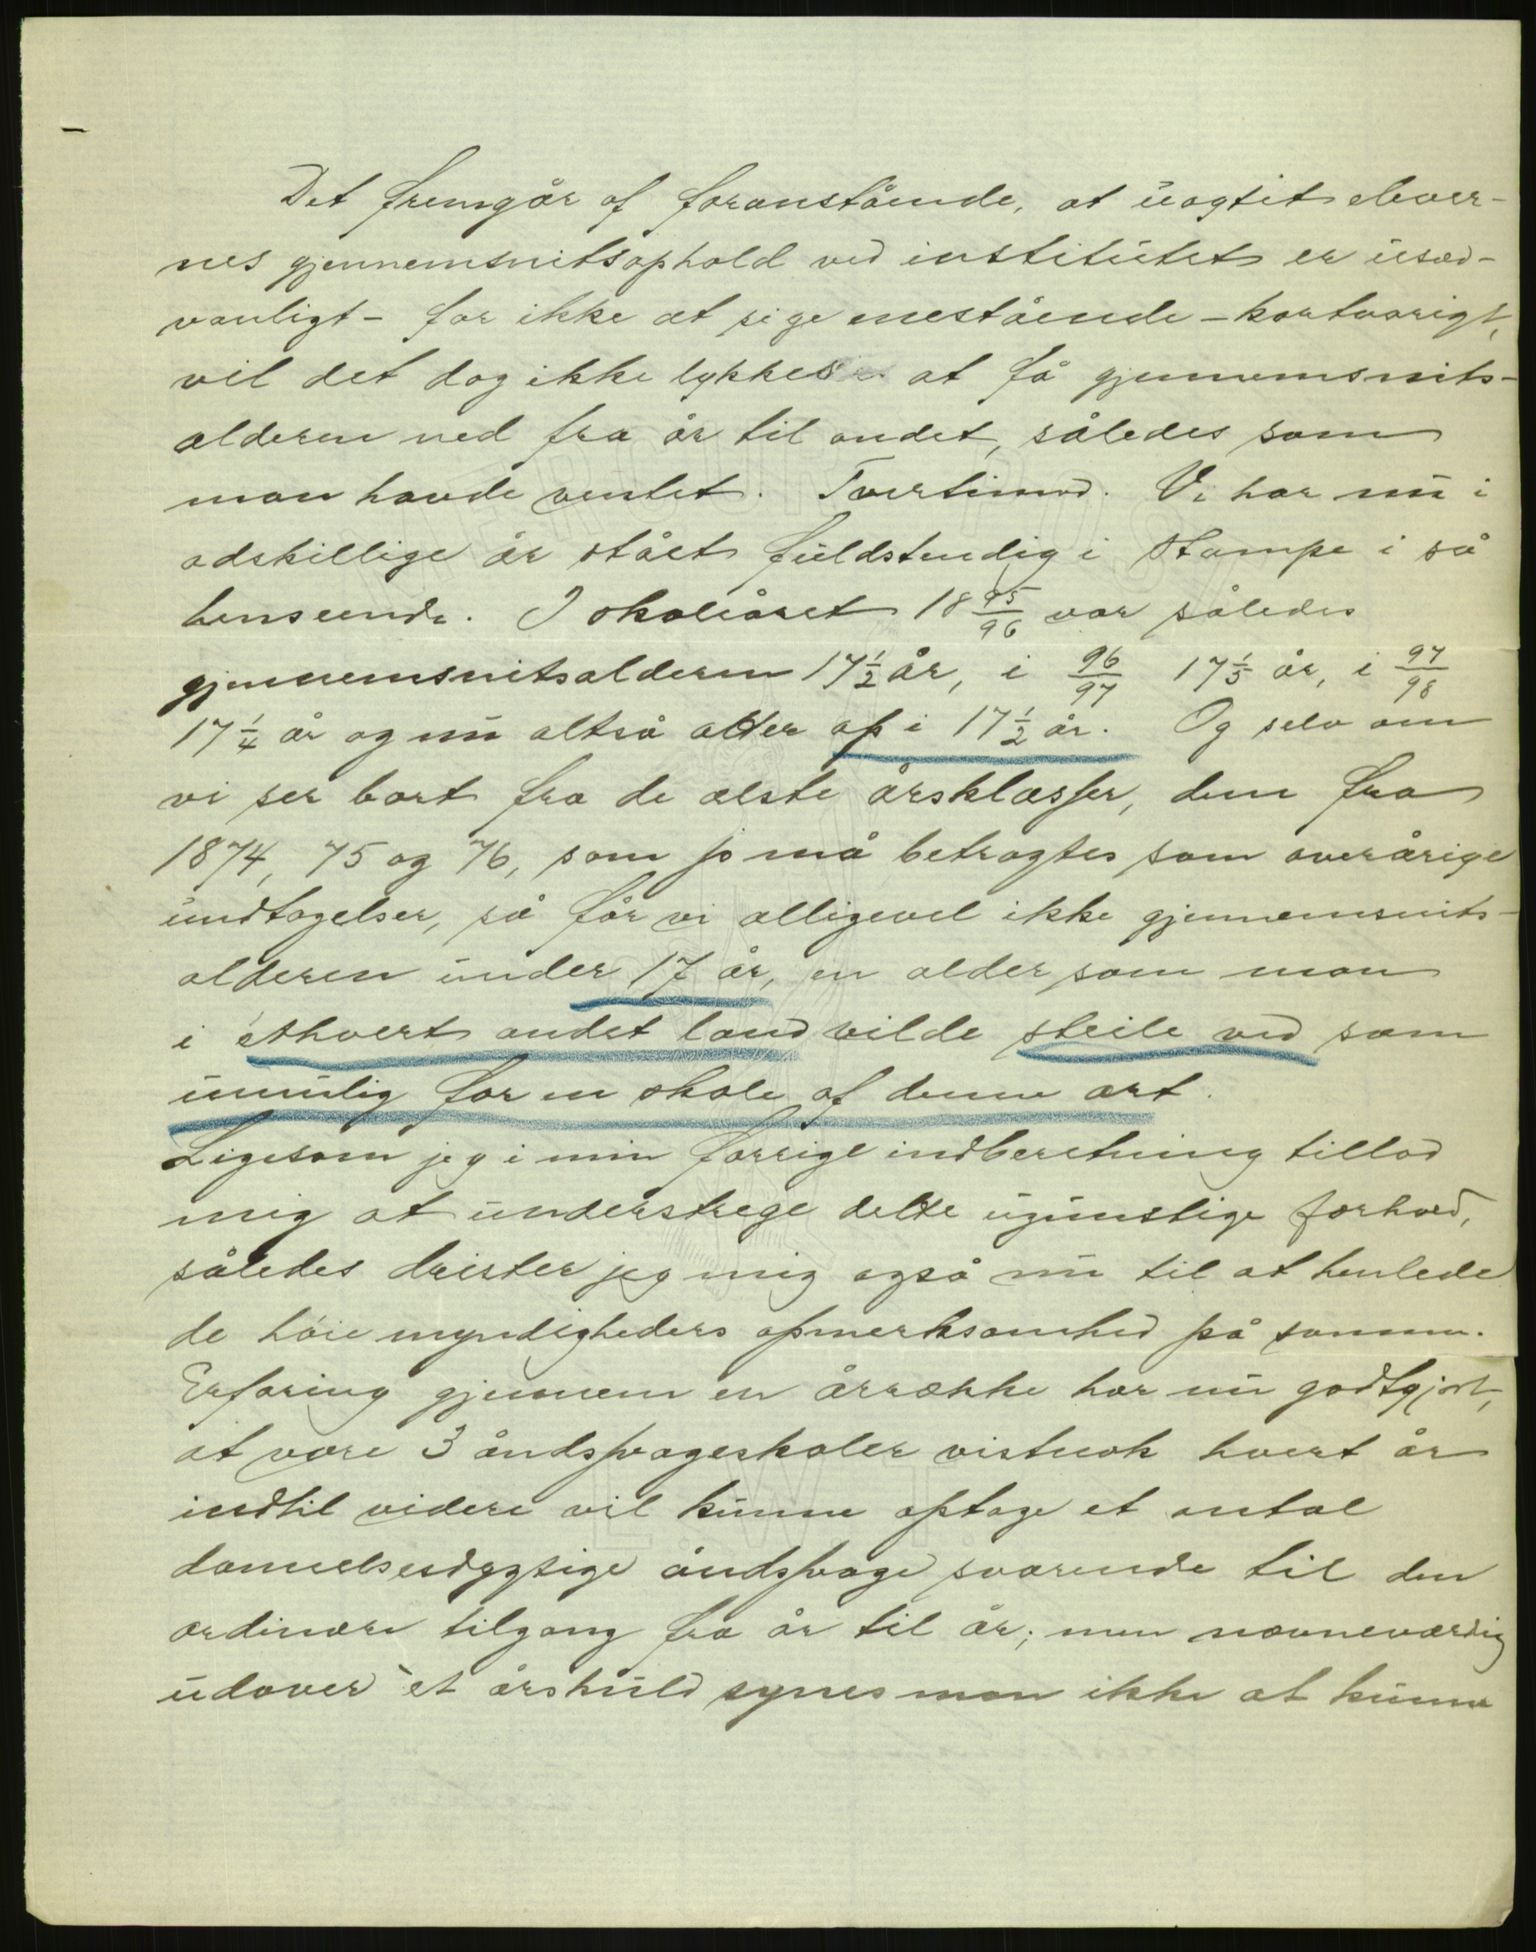 Det fremgår af foranstående, at uagtet elever-
nes gjennemsnitsophold ved institutet er usæd-
vanligt – for ikke at sige enestående – kortvarigt,
vil det dog ikke lykkes at få gjennemsnits-
alderen ned fra år til andet, således som
man havde ventet. Tvertimod. Vi har nu i
adskillige år stået fuldstendig i stampe i så
henseende. I skoleåret 18 95/96 var således
gjennemsnitsalderen 17 1/2 år, i 96/97 17 1/5 år, i 97/98
17 1/4 år og nu altså atter op i 17 1/2 år. Og selv om
vi ser bort fra de ælste årsklasser, dem fra
1874, 75 og 76, som jo må betragtes som overårige
undtagelser, så får vi alligevel ikke gjennemsnits-
alderen under 17 år, en alder som man
i ethvert andet land vilde steile ved som
umulig for en skole af denne art.
Ligesom jeg i min forrige indberetning tillod
mig at understrege dette ugunstige forhold,
således drister jeg mig også nu til at henlede
de høie myndigheders opmerksomhed på samme.
Erfaring gjennem en årrække har nu godtgjort,
at vore 3 åndssvageskoler vistnok hvert år
indtil videre vil kunne optage et antal
dannelsesdygtige åndssvage svarende til den
ordinære tilgang fra år til år; men nævneværdig
udover et årskuld synes man ikke at kunne